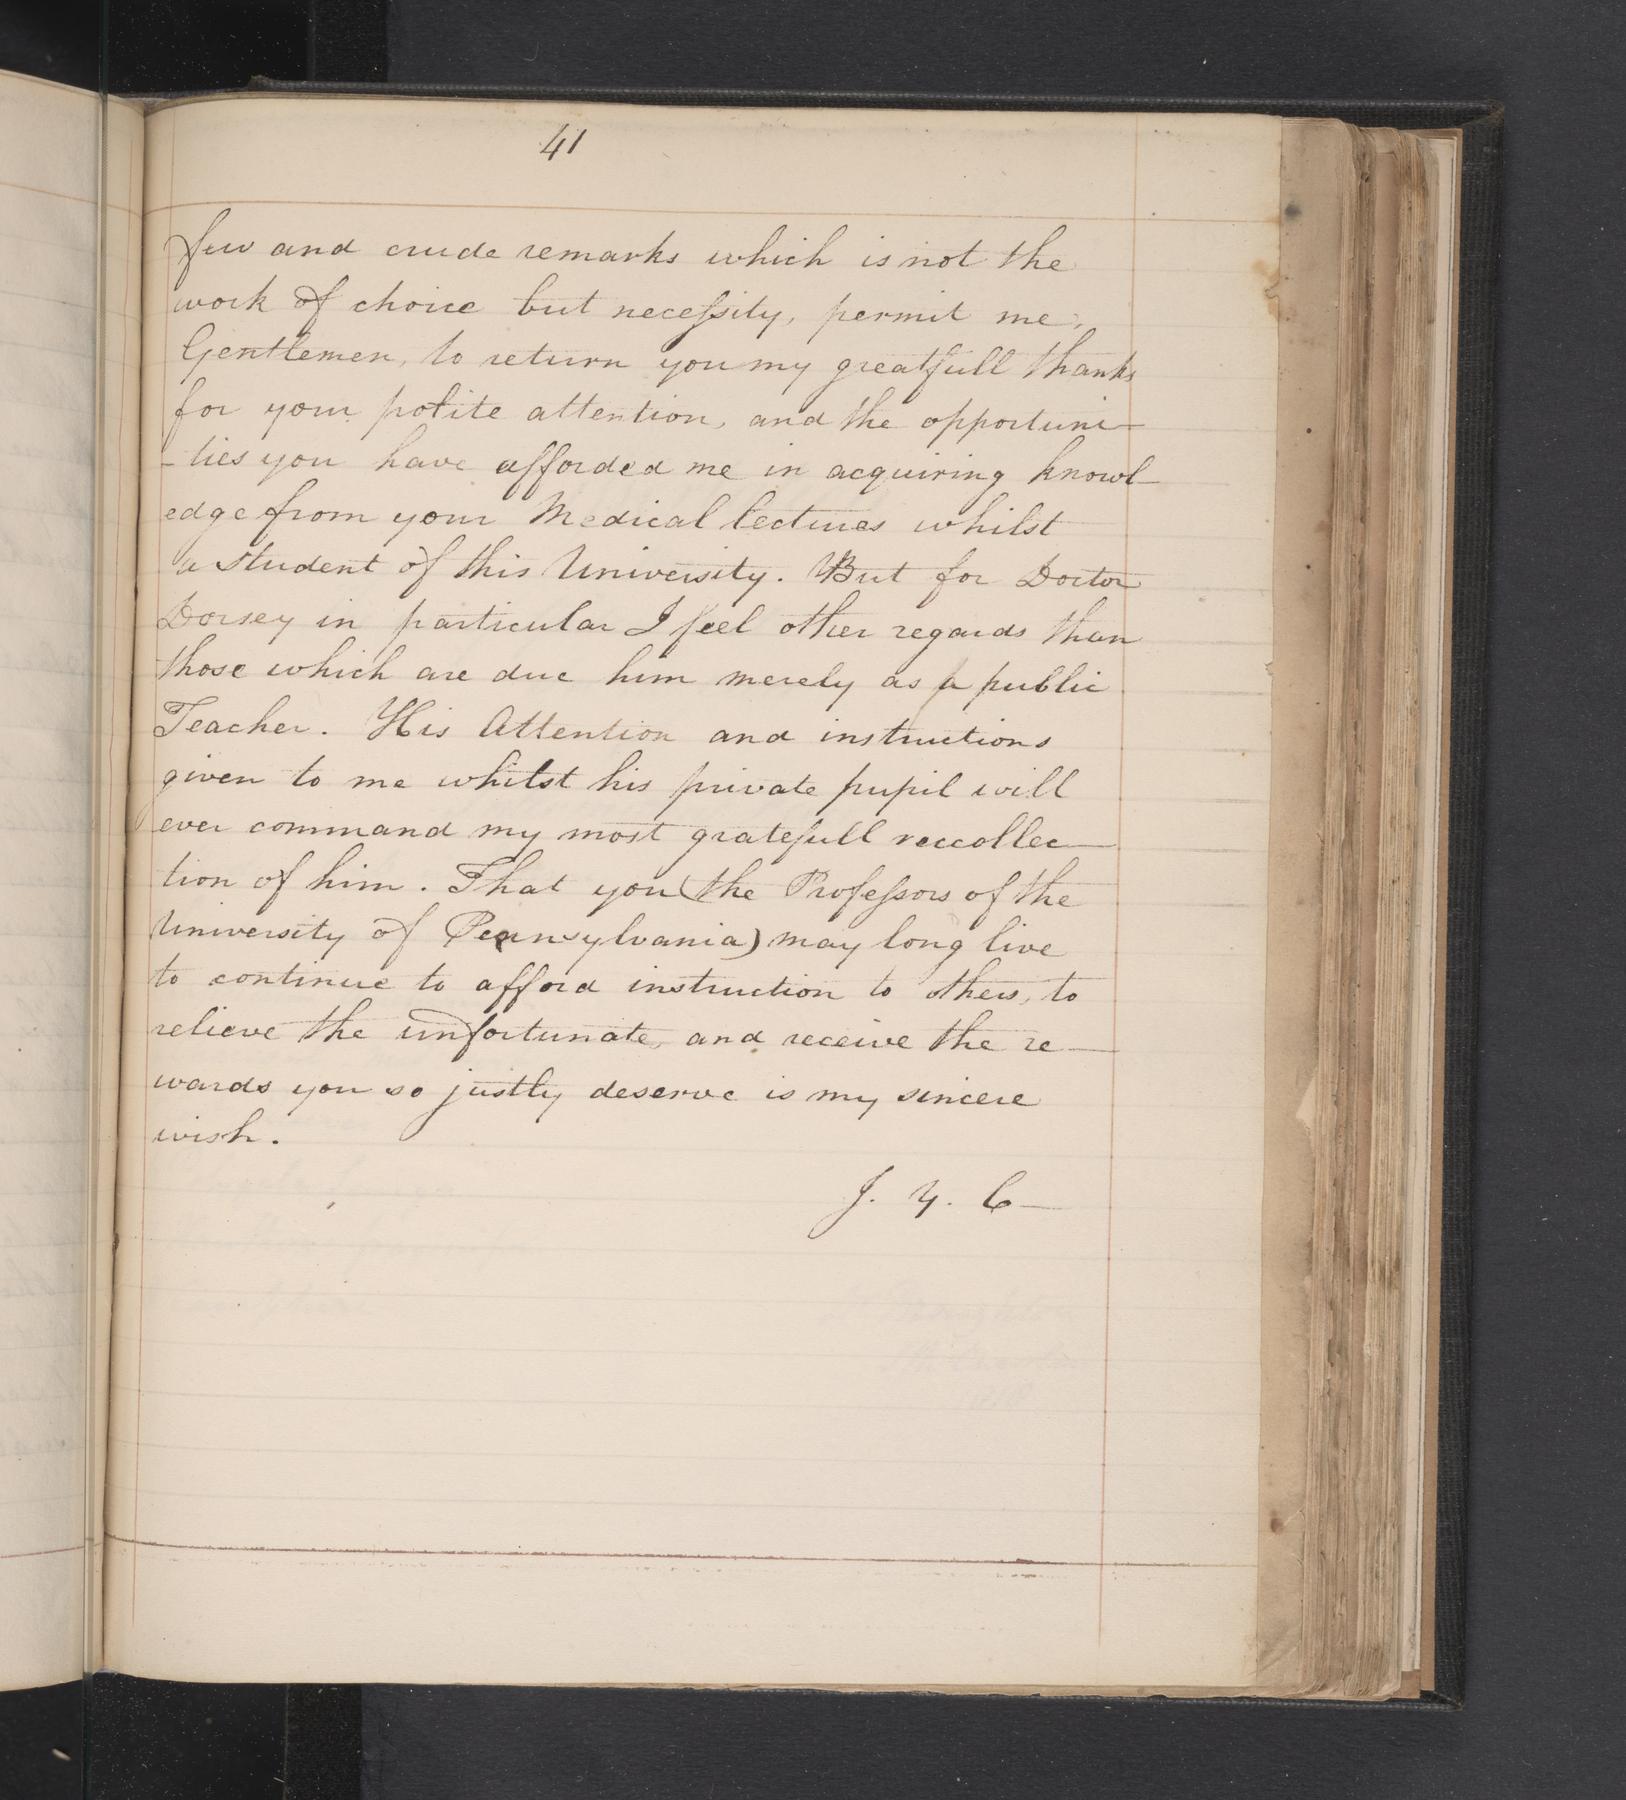 41
few and crude remarks which is not the
work of choice but necessity, permit me,
Gentlemen, to return you my greatfull thanks
for your polite attention, and the opportuni-
-ties you have afforded me in acquiring knowl-
edge from your Medical lectures whilst
a student of this University. But for Doctor
Dorsey in particular I feel other regards than
those which are due him merely as a public
Teacher. His Attention and instructions
given to me whilst his private pupil will
ever command my most gratefull reccollec-
tion of him. That you (the Professors of the
University of Pennsylvania) may long live
to continue to afford instruction to others, to
relieve the unfortunate, and receive the re-
wards you so justly deserve is my sincere
wish.
J. Y. C-